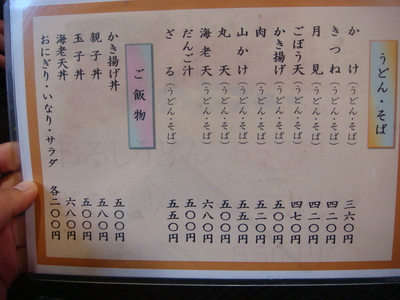 うどん・そば
かけ(うどん・そば) 三六〇円
きつね(うどん・そば) 四二〇円
月見(うどん・そば) 四二〇円
ごぼう天(うどん・そば) 四七〇円
かき揚げ(うどん・そば) 五〇〇円
肉(うどん・そば) 五二〇円
山かけ(うどん・そば) 五五〇円
丸天(うどん・そば)
海老天(うどん・そば) 六八〇円
だんご汁(うどん・そば)
ざる(うどん・そば) 五五〇円
ご飯物
かき揚げ丼 五〇〇円
親子丼 五八〇円
玉子丼 五〇〇円
海老天丼 六八〇円
おにぎり・いなり・サラダ 各二〇〇円